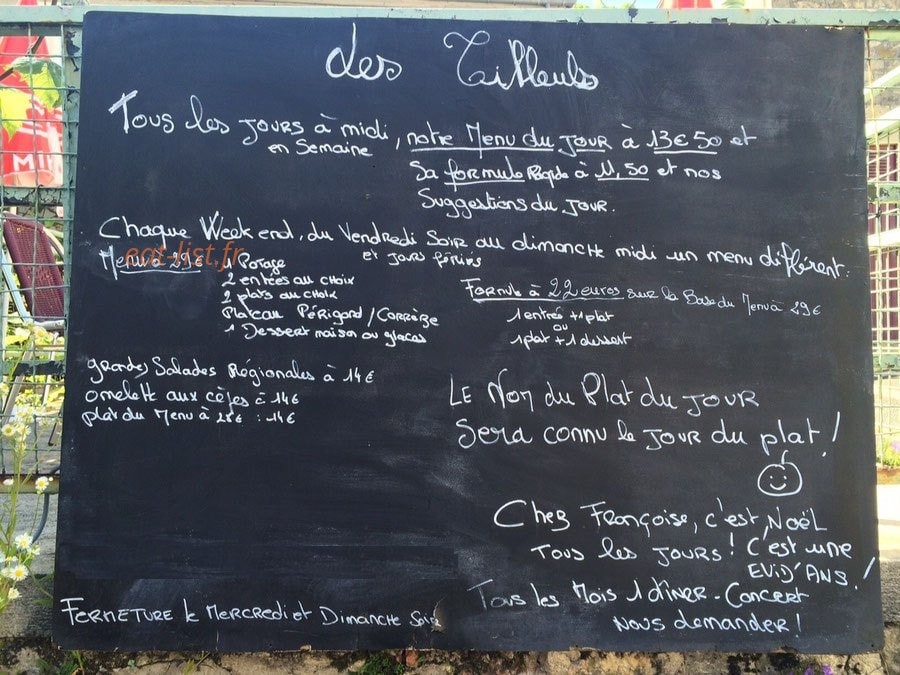 des Tilleuls
Tous les jours à midi, notre Menu du Jour à 13€50 et
en semaine
sa formule Rapide à 11,50 et nos
suggestions du Jour.
Chaque Week end, du Vendredi soir au dimanche midi un menu différent:
et jours fériés
Menu à 29€
1 Potage
2 entrées au choix
2 plats au choix
Plateau Périgord/Corrèze
1 Dessert maison ou glaces
Formule à 22 euros sur la Base du Menu à 29€
1 entrée + 1 plat
ou
1 plat + 1 dessert
grandes Salades Régionales à 14€
omelette aux cèpes à 14€
plat du Menu à 28€ : 14€
Le Nom du Plat du Jour
sera connu le jour du plat!
Chez Françoise, c'est Noël
tous les jours! C'est une
EVID'ANS!
Tous les Mois 1 dîner-Concert
nous demander!
Fermeture le Mercredi et Dimanche Soir
eat-list.fr
MI